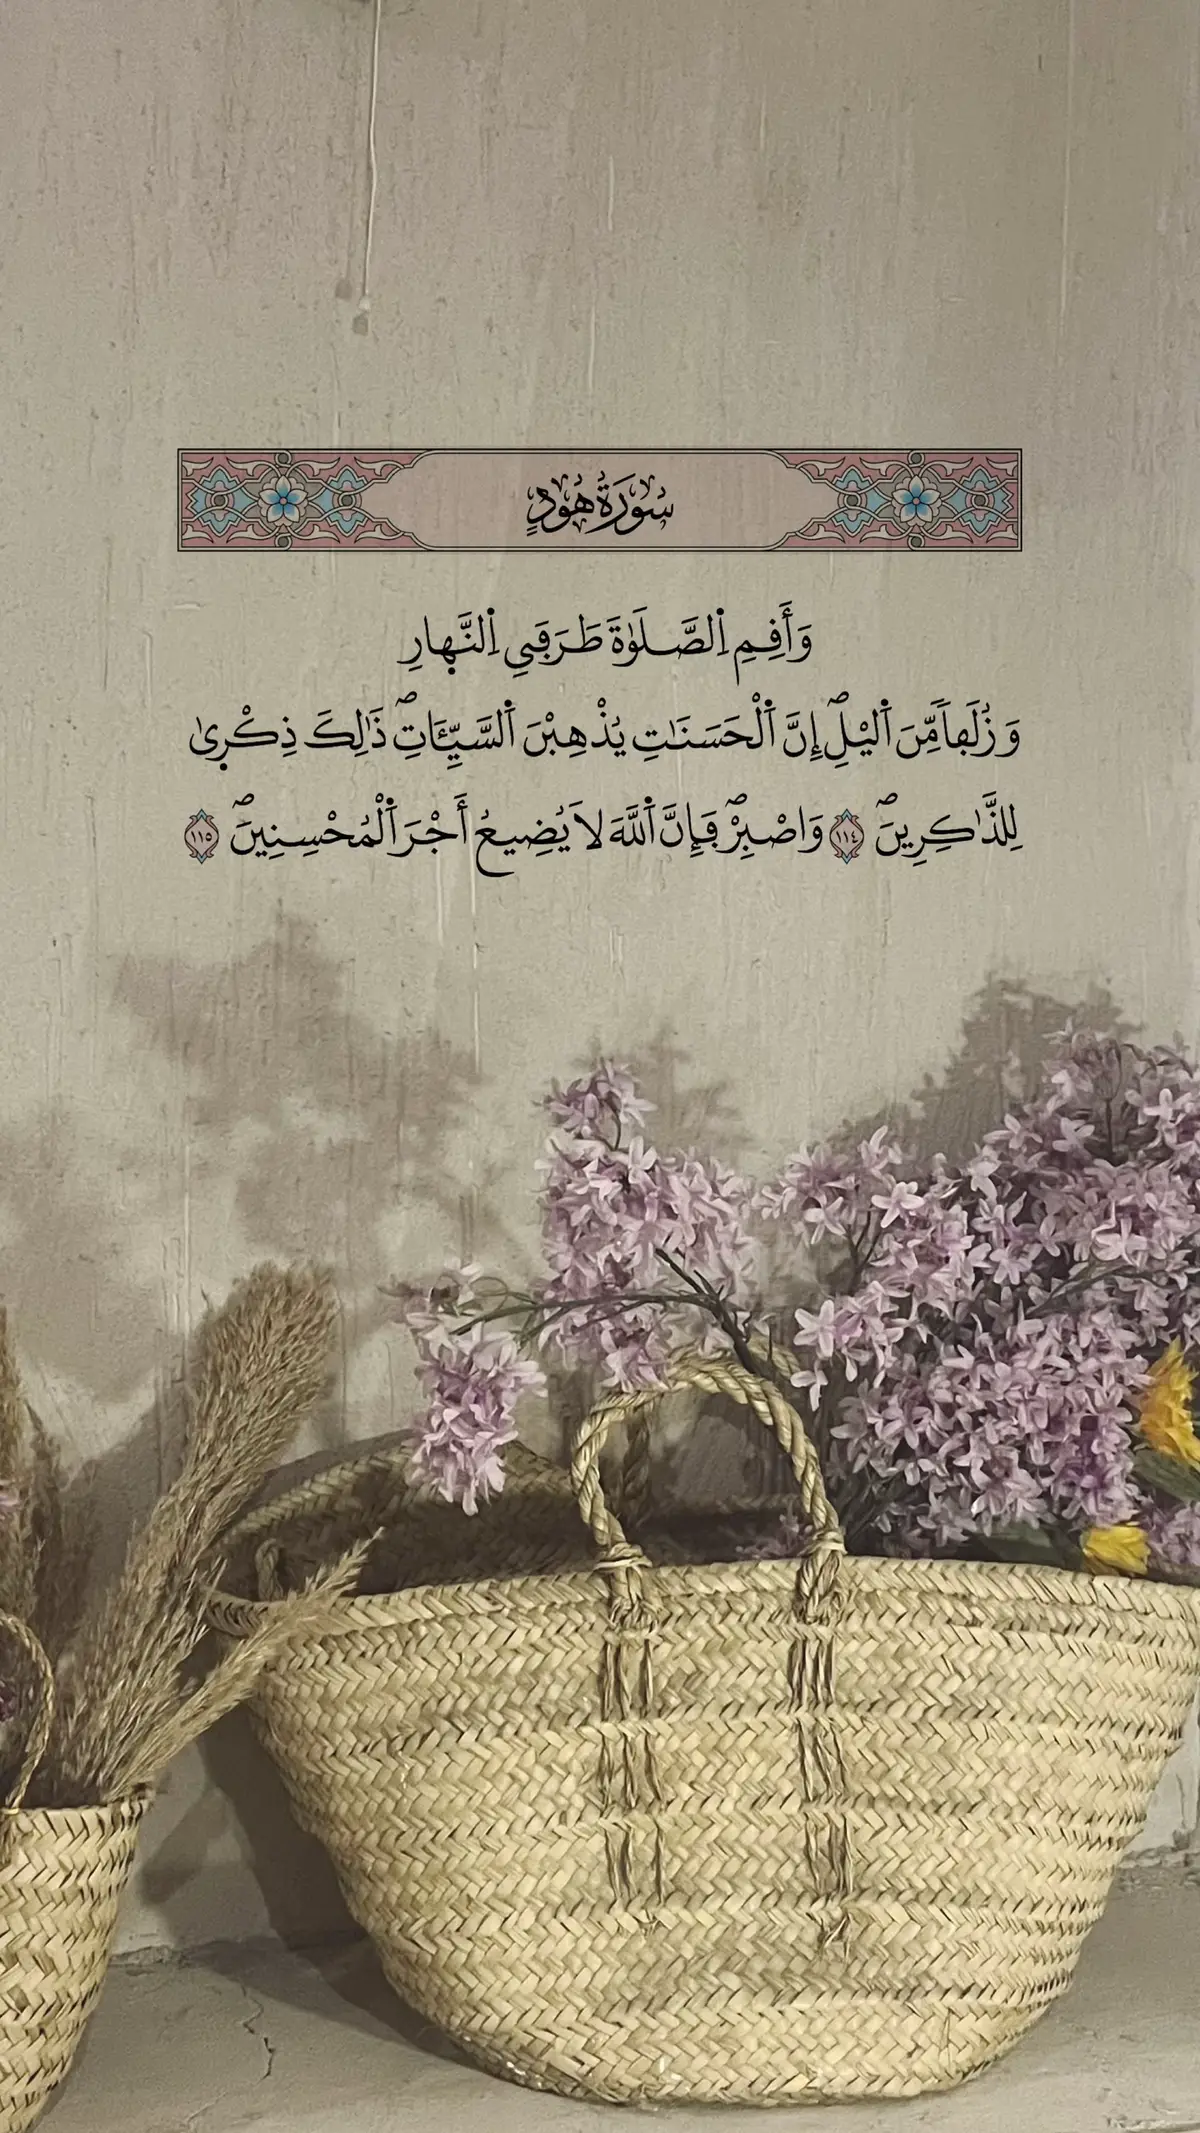 سُورَةُ هُودٍ
وَأَقِمِ اِ۬لصَّلَوٰةَ طَرَفَيِ اِ۬لنَّه۪ارِ
وَزُلَفاٗ مِّنَ اَ۬ليْلِۖ إِنَّ اَ۬لْحَسَنَٰتِ يُذْهِبْنَ اَ۬لسَّيِّـَٔاتِۖ ذَٰلِكَ ذِكْر۪ىٰ
لِلذَّٰكِرِينَۖ ١١٤ وَاصْبِرْۖ فَإِنَّ اَ۬للَّهَ لَا يُضِيعُ أَجْرَ اَ۬لْمُحْسِنِينَۖ ١١٥